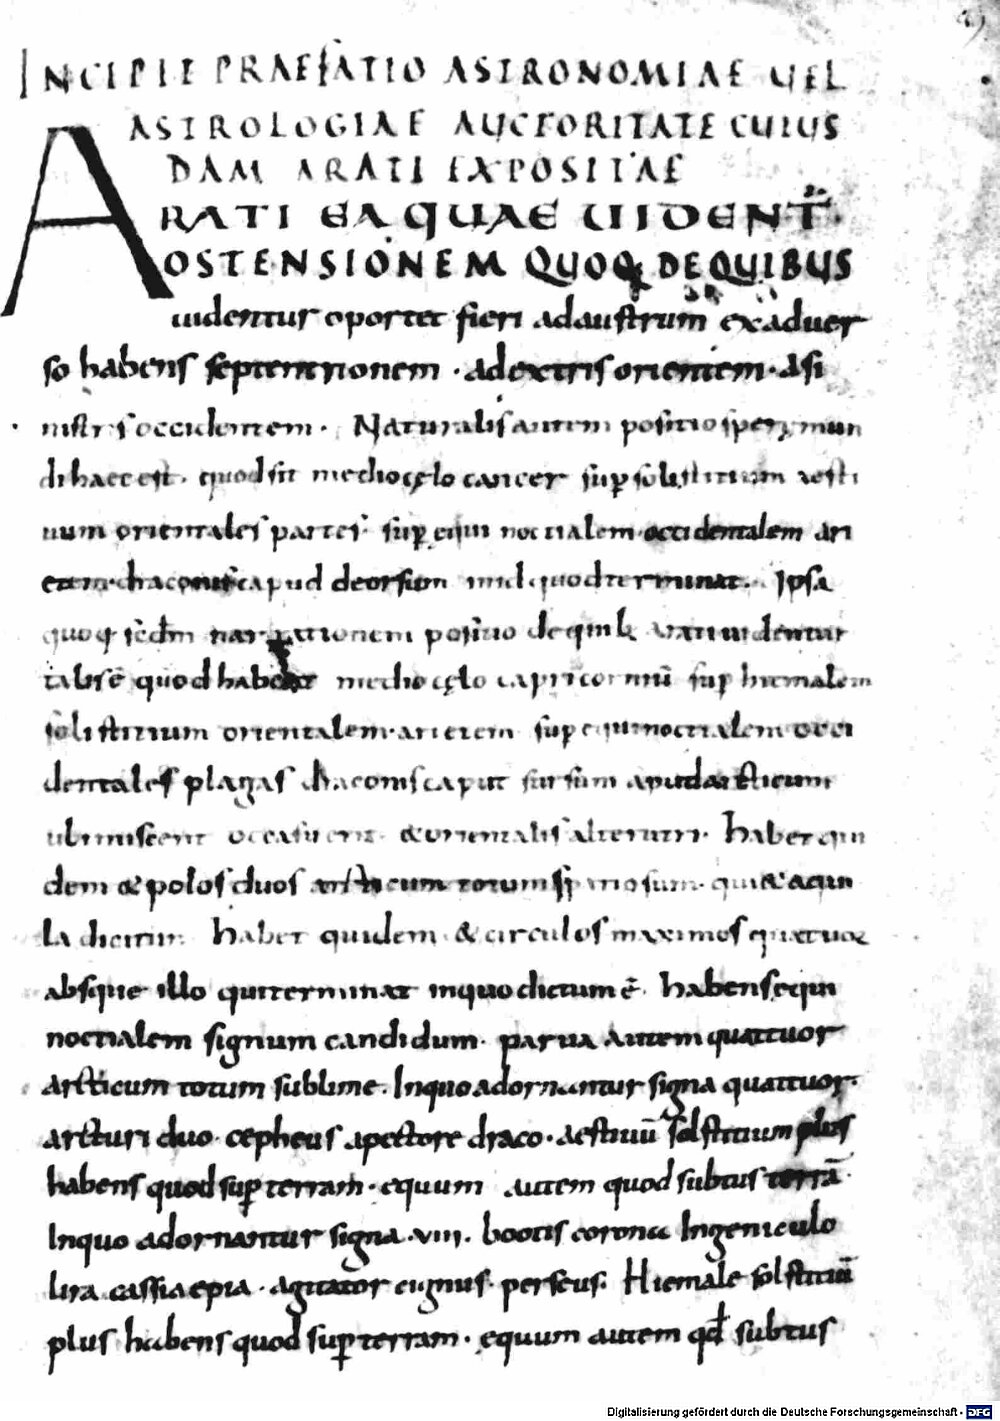 INCIPIT PRAEFATIO ASTRONOMIAE UEL
ASTROLOGIAE AUCTORITATE CUIUS
DAM ARATI EXPOSITAE
ARATI EA QUAE UIDENT̄
OSTENSIONEM QUOQ; DE QUIBUS
uidentur oportet fieri adaustrum exaduer
so habens septentrionem · adextris orientem · asi
nistris occidentem · Naturalis autem positio sperȩ mun
di haec est · quod sit mediocȩlo cancer suꝑ solistitium aesti
uum orientales partes suꝑ equinoctialem occidentalem ari
etem · draconis capud deorsum quod terminat · Ipsa
quoq; narrationem positio de quib; arati uidentur
talis ē quod habeat mediocȩlo capricornū suꝑ hiemalem
solistitium orientalem · arietem suꝑ equinoctialem occi
dentales plagas draconis caput sursum apud arcticum
ubi miscent occasu & orientalis alterutri · habet qui
dem & polos duos arcticum totum qui & aqui
la dicitur · habet quidem & circulos maximos quattuor
absque illo qui terminat inquo dictum ē · habens equi
noctialem signum candidum · parua autem quattuor
arcticum totum sublime · Inquo adornantur signa quattuor ·
arcturi duo · cepheus apectore draco · aestiuū solstitium plus
habens quod suꝑ terram · equum autem quod subtus terrā ·
Inquo adornantur signa · viii · bootis corona Ingeniculo
lira cassiaepia · agitator cignus · perseus · Hiemale solstitiū
plus habens quod suꝑ terram · equum autem qđ subtus
Digitalisierung gefördert durch die Deutsche Forschungsgemeinschaft - DFG